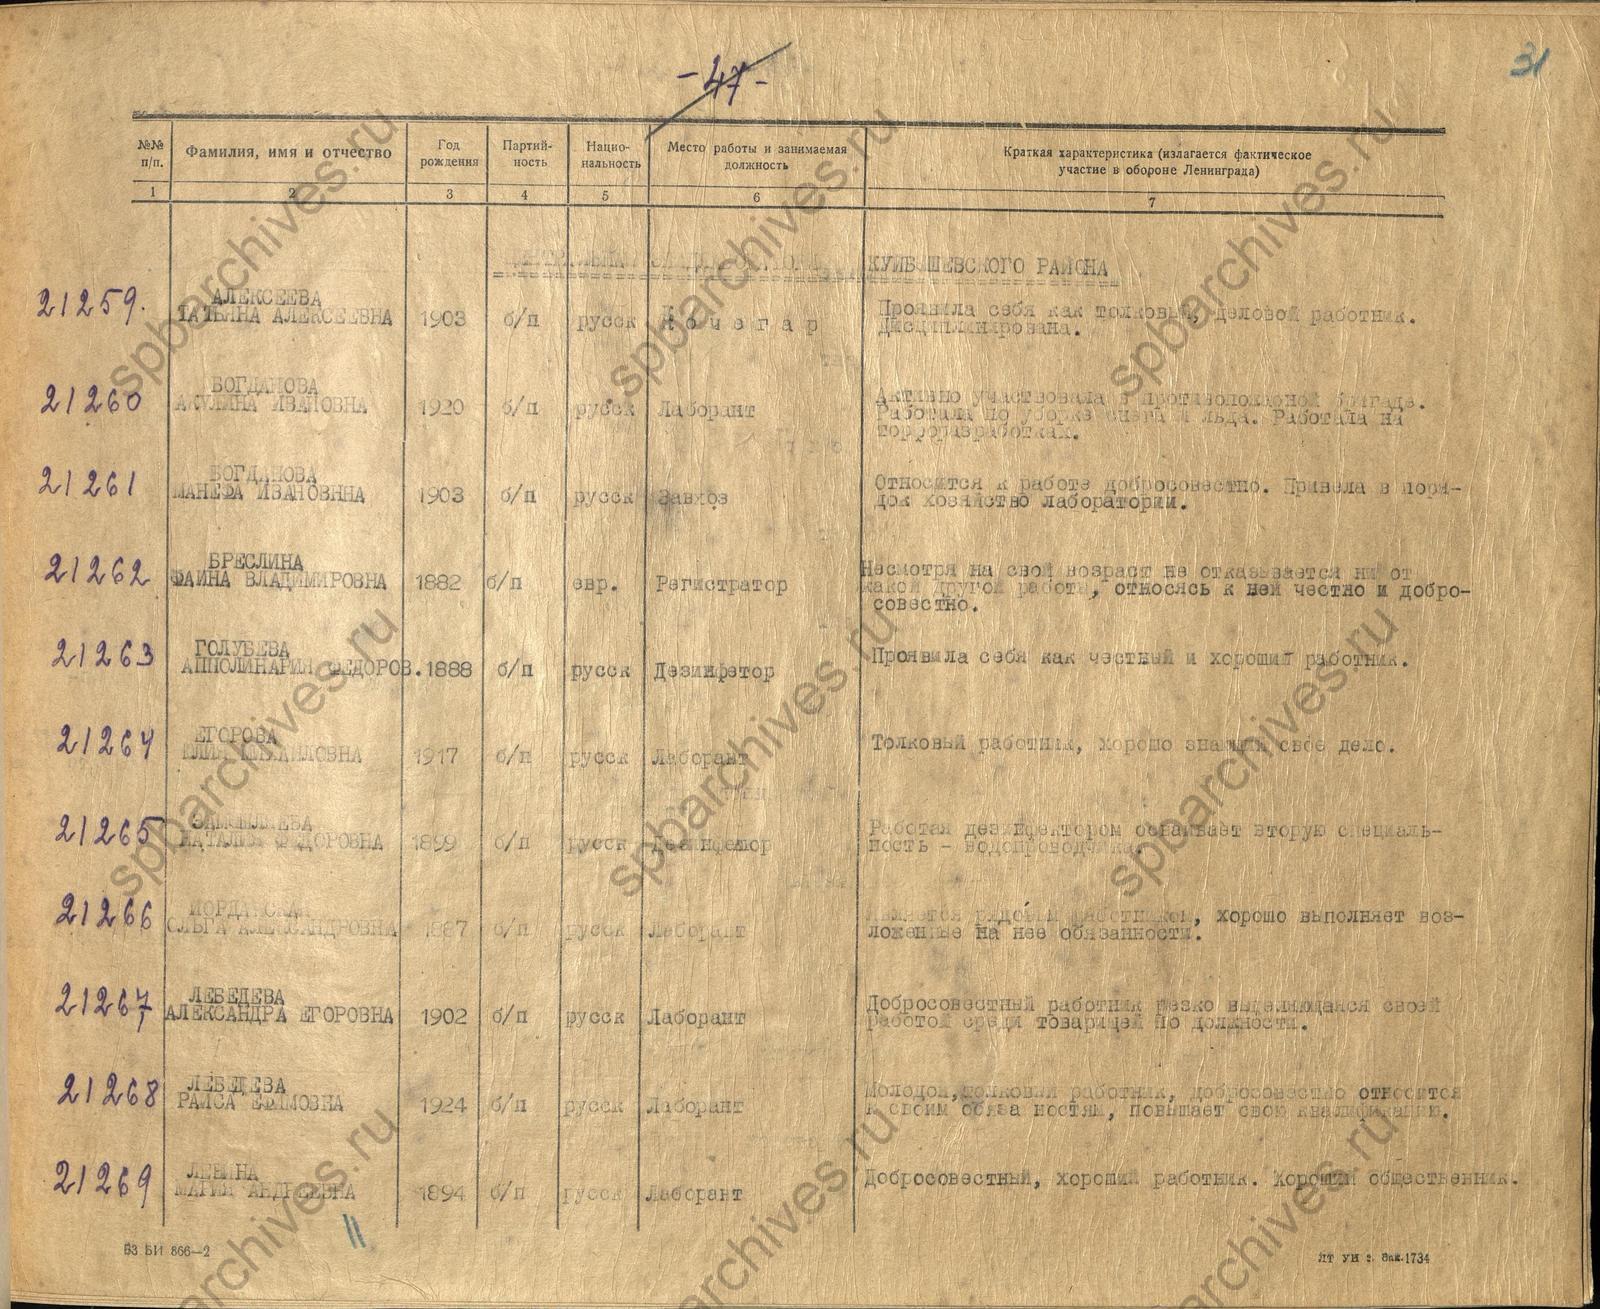 -47-
31
№№ п/п.
Фамилия, имя и отчество
Год рождения
Партий-ность
Нацио-нальность
Место работы и занимаемая должность
Краткая характеристика (излагается фактическое участие в обороне Ленинграда)
1 2 3 4 5 6 7
КУЙБЫШЕВСКОГО РАЙОНА
21259. АЛЕКСЕЕВА
ТАТЬЯНА АЛЕКСЕЕВНА 1903 б/п русск К о ч е г а р
Проявила себя как толковый, деловой работник.
Дисциплинирована.
21260 БОГДАНОВА
АКУЛИНА ИВАНОВНА 1920 б/п русск Лаборант
Активно участвовала в противопожарной бригаде.
Работала по уборке снега и льда. Работала на
торфоразработках.
21261 БОГДАНОВА
МАНЕФА ИВАНОВННА 1903 б/п русск Завхоз
Относится к работе добросовестно. Привела в поря-
док хозяйство лаборатории.
21262 БРЕСЛИНА
ФАИНА ВЛАДИМИРОВНА 1882 б/п евр. Регистратор
Несмотря на свой возраст не отказывается ни от
какой другой работы, относясь к ней честно и добро-
совестно.
21263 ГОЛУБЕВА
АППОЛИНАРИЯ ФЕДОРОВ. 1888 б/п русск Дезинфетор
Проявила себя как честный и хороший работник.
21264 ЕГОРОВА
МИХАЙЛОВНА 1917 б/п русск Лаборант
Толковый работник, хорошо знающий свое дело.
21265
НАТАЛИЯ ФЕДОРОВНА 1899 б/п русск Дезинфетор
Работая дезинфектором осваивает вторую специаль-
ность - водопроводчика.
21266 ИОРДАНСКАЯ
ОЛЬГА АЛЕКСАНДРОВНА 1887 б/п русск Лаборант
Является рядовым работником, хорошо выполняет воз-
ложенные на нее обязанности.
21267 ЛЕБЕДЕВА
АЛЕКСАНДРА ЕГОРОВНА 1902 б/п русск Лаборант
Добросовестный работник резко выделяющаяся своей
работой среди товарищей по должности.
21268 ЛЕБЕДЕВА
РАИСА ЕФИМОВНА 1924 б/п русск Лаборант
Молодой, толковый работник, добросовестно относится
к своим обяза ностям, повышает свою квалификацию.
21269 ЛЕВИНА
МАРИЯ АНДРЕЕВНА 1894 б/п русск Лаборант
Добросовестный, хороший работник. Хороший общественник.
БЗ БИ 866—2
ЛТ УИ з. Зак. 1734
spbarchives.ru